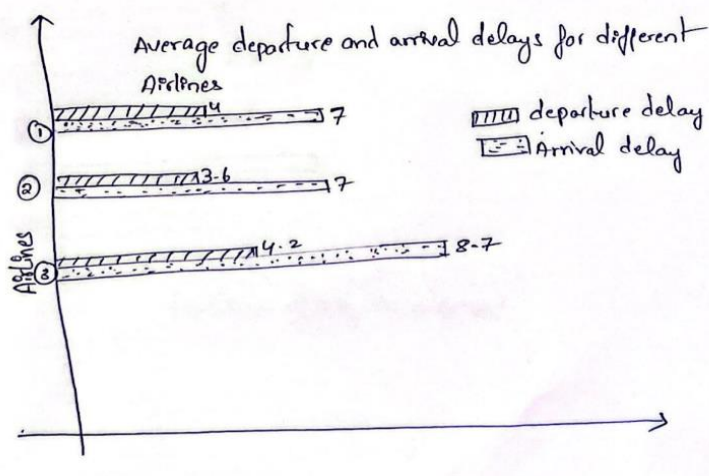 Average departure and arrival delays for different
Airlines
departure delay
Arrival delay
① 4
7
② 3.6
7
③ 4.2
8.7
Airlines